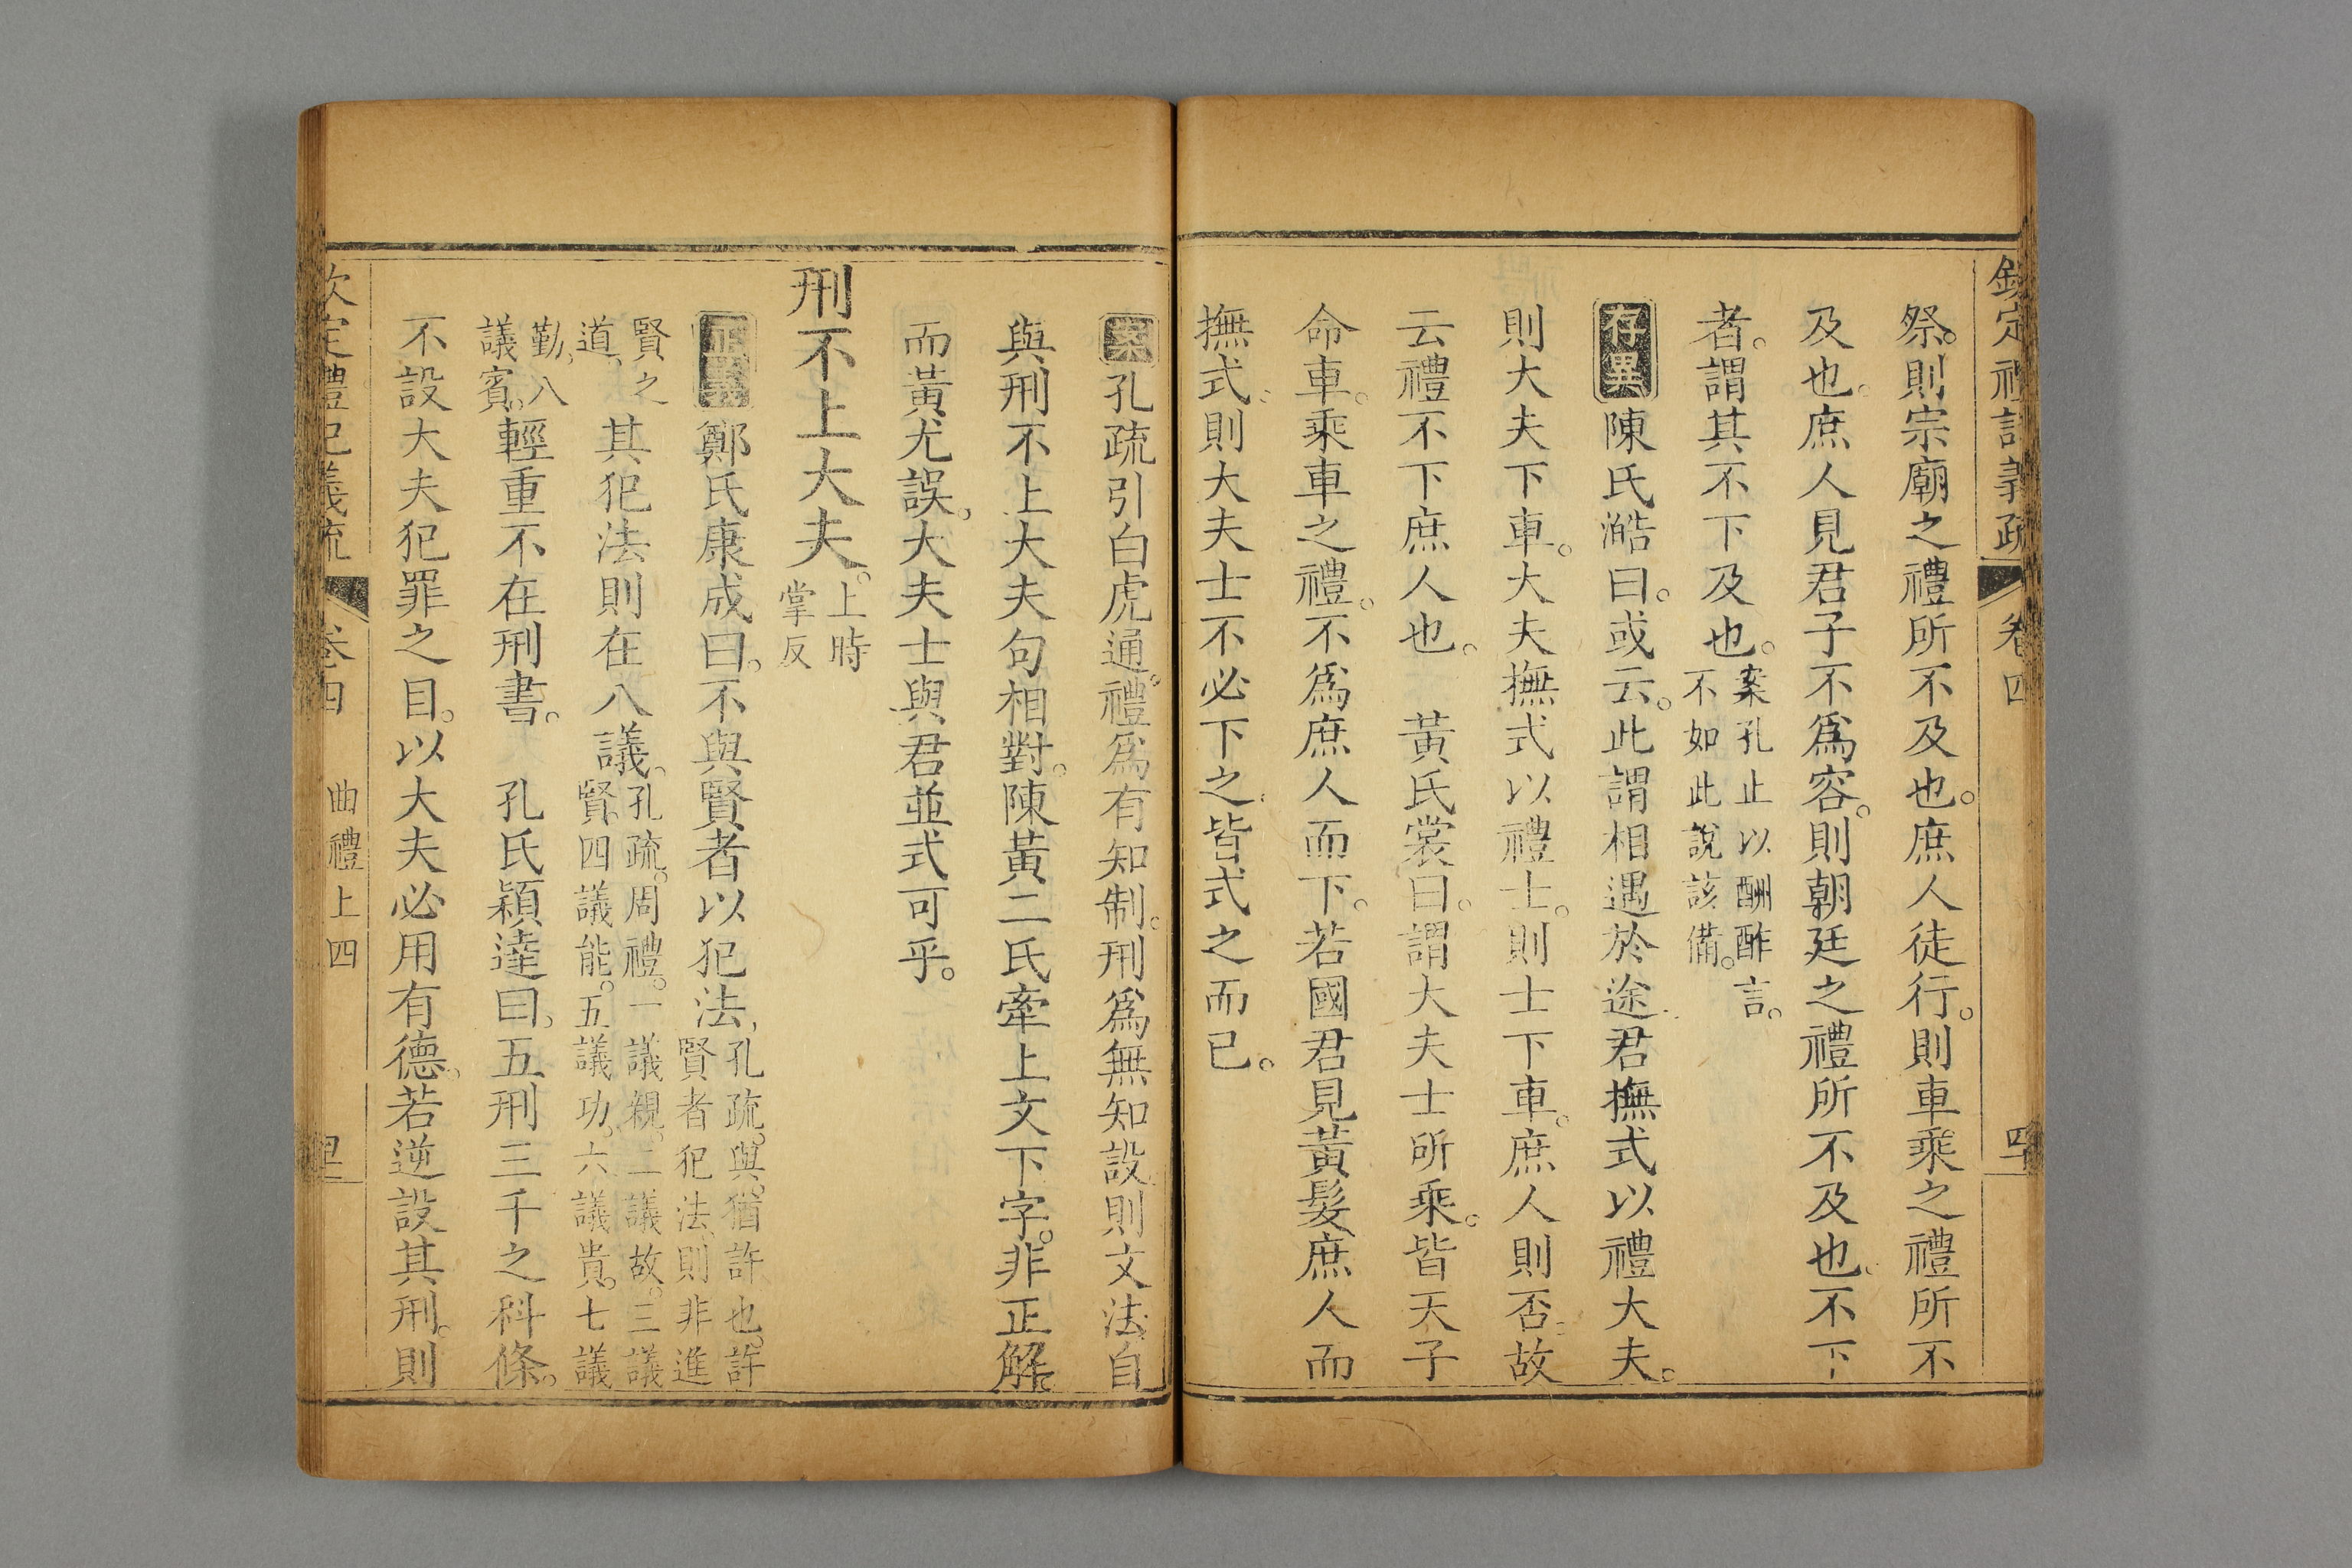 欽定禮記義疏 卷四
祭。則宗廟之禮所不及也。庶人徒行。則車乘之禮所不
及也。庶人見君子不爲容。則朝廷之禮所不及也。不下
者。謂其不下及也。案孔止以酬酢言。不如此說該備。
存異 陳氏澔曰。或云。此謂相遇於途。君撫式以禮大夫。
則大夫下車。大夫撫式以禮士。則士下車。庶人則否。故
云禮不下庶人也。 黃氏裳曰。謂大夫士所乘。皆天子
命車。乘車之禮。不爲庶人而下。若國君見黃髮庶人而
撫式。則大夫士不必下之。皆式之而已。
案 孔疏引白虎通。禮爲有知制。刑爲無知設。則文法自
與刑不上大夫句相對。陳黃二氏牽上文下字。非正解。
而黃尤誤。大夫士與君並式可乎。
刑不上大夫。上時掌反
正義 鄭氏康成曰。不與賢者以犯法,孔疏。與。猶許也。許賢者犯法,則非進
賢之道。其犯法則在八議。孔疏。周禮。一議親。二議故。三議賢。四議能。五議功。六議貴。七議
勤,八議賓。輕重不在刑書。 孔氏穎達曰。五刑三千之科條。
不設大夫犯罪之目。以大夫必用有德。若逆設其刑。則
欽定禮記義疏 卷四 曲禮上四